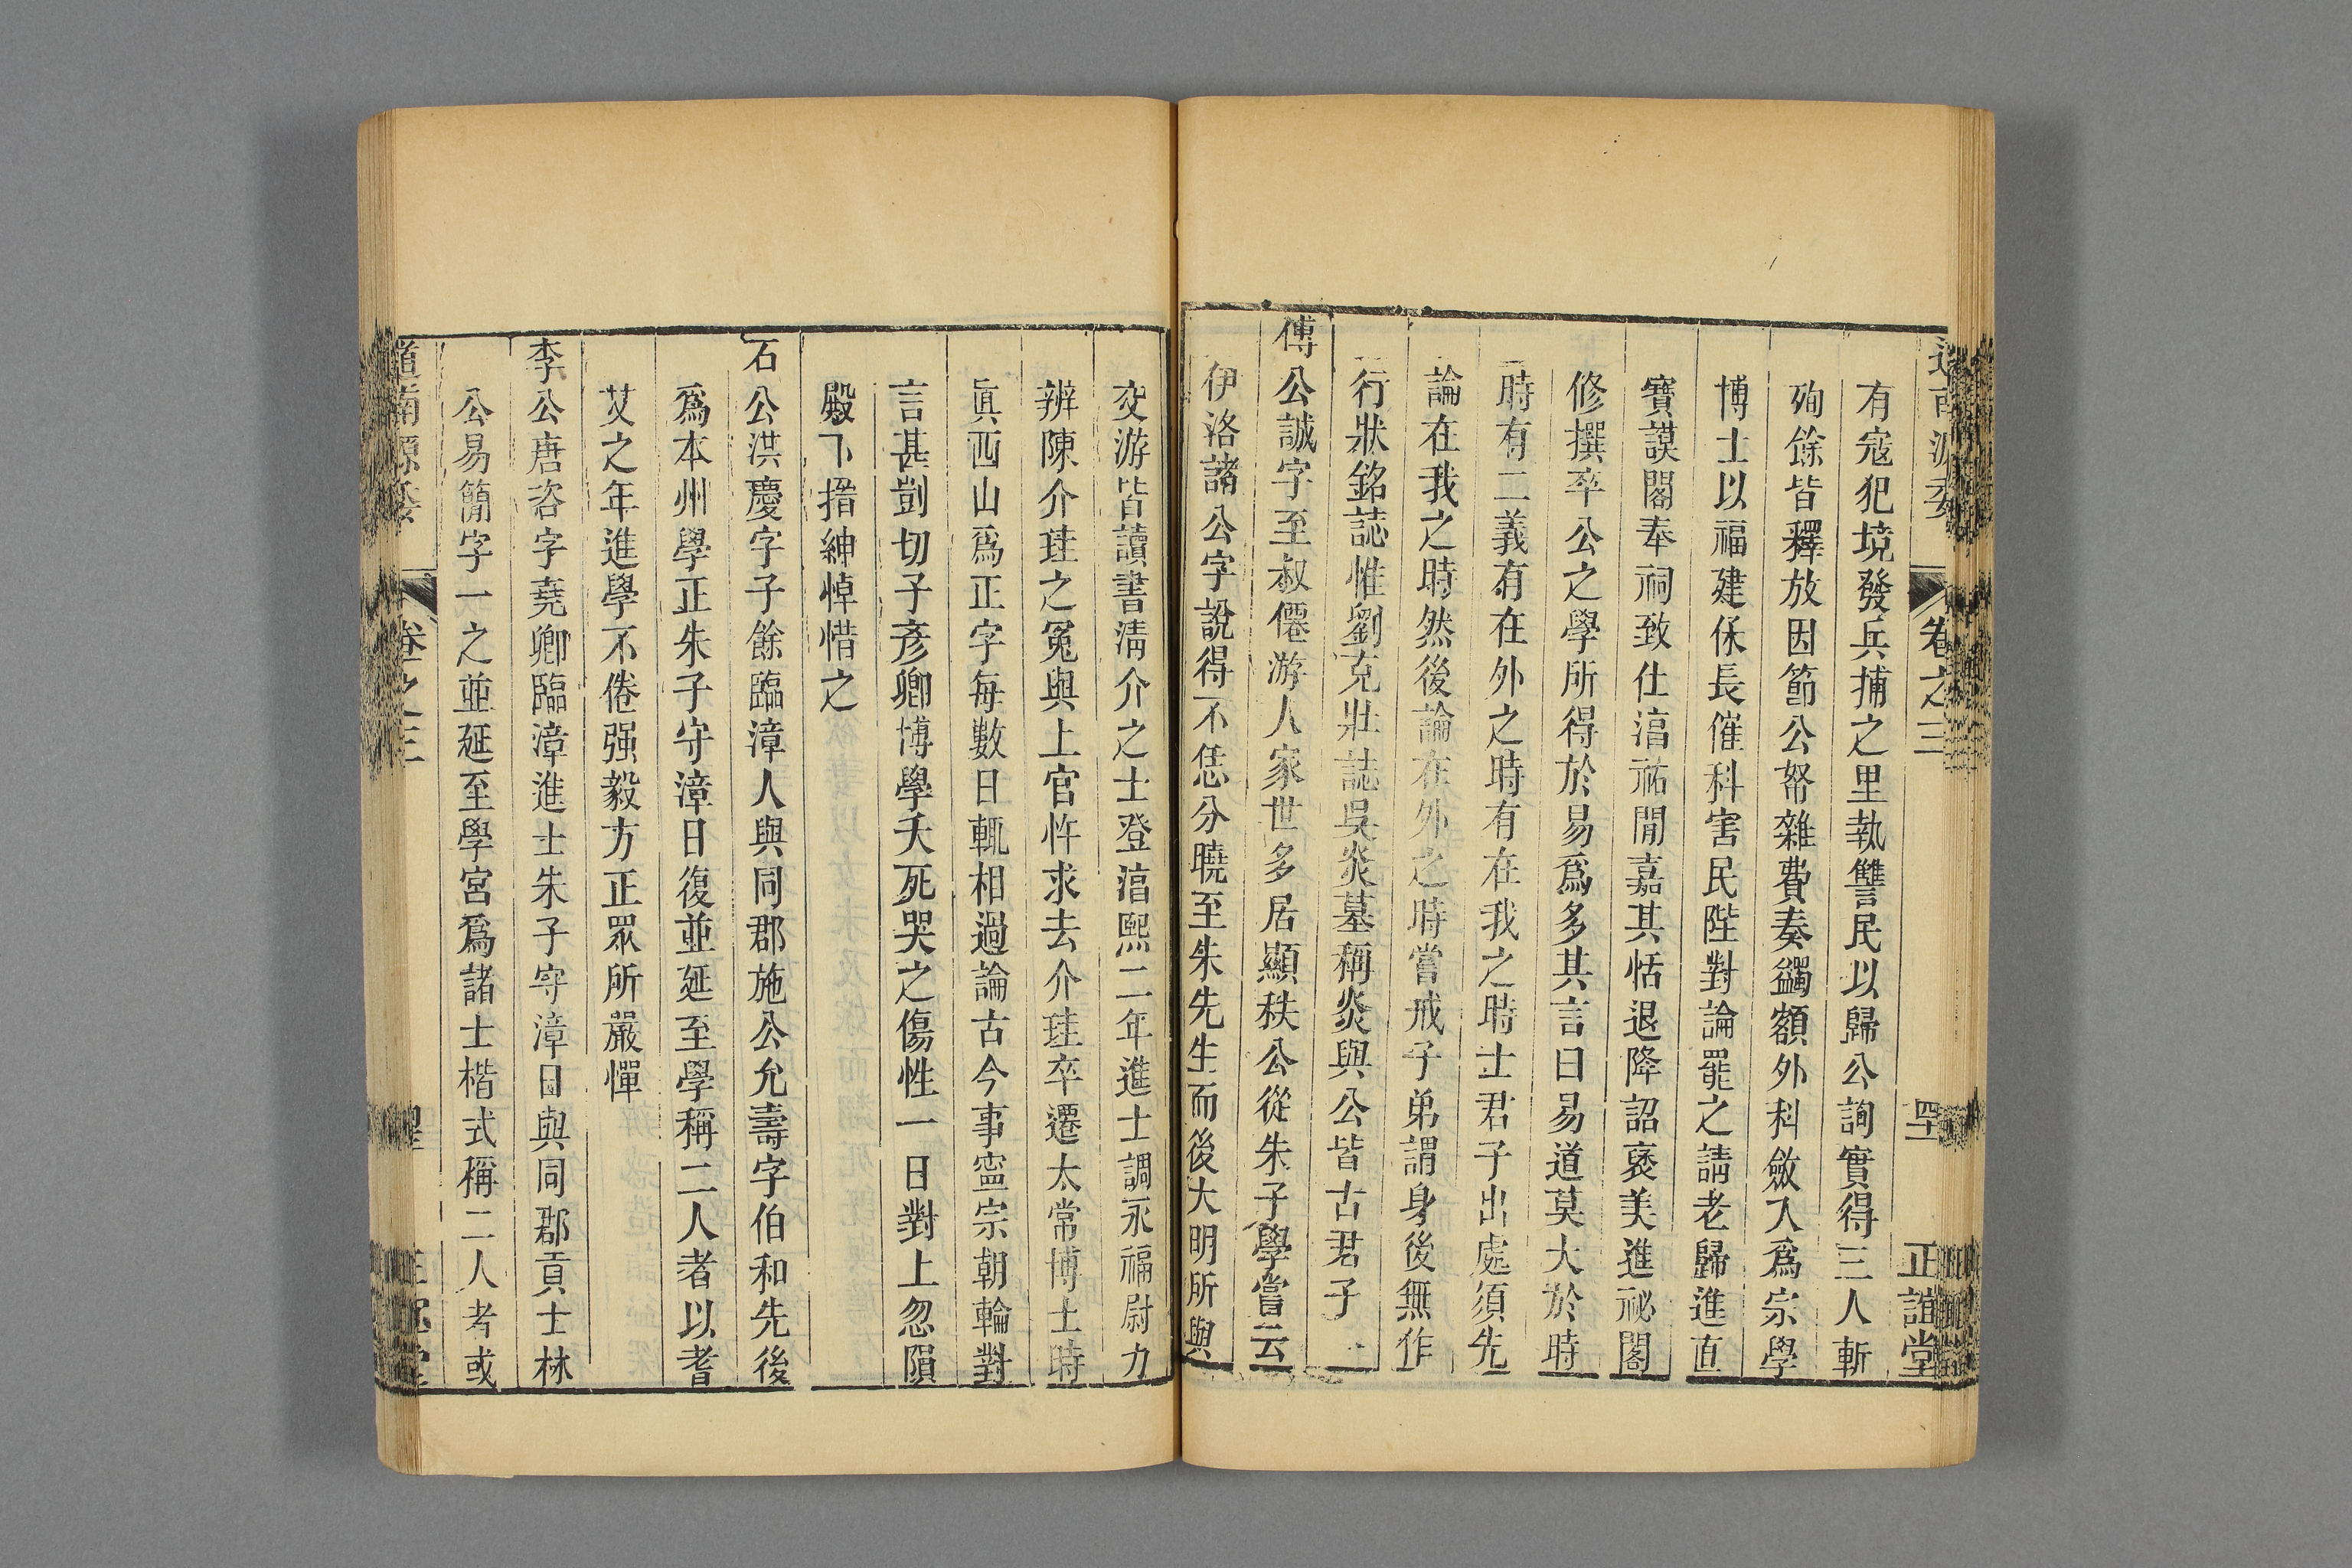 卷之三
正誼堂
有寇犯境發兵捕之里執讐民以歸公詢實得三人斬
殉餘皆釋放因節公帑雜費奏蠲額外科斂入爲宗學
博士以福建保長催科害民陛對論罷之請老歸進直
寶謨閣奉祠致仕淳祐閒嘉其恬退降詔褒美進祕閣
修撰卒公之學所得於易爲多其言曰易道莫大於時
時有二義有在外之時有在我之時士君子出處須先
論在我之時然後論在外之時嘗戒子弟謂身後無作
行狀銘誌惟劉克壯誌吳炎墓稱炎與公皆古君子
傅公誠字至叔僊游人家世多居顯秩公從朱子學嘗云
伊洛諸公字說得不恁分曉至朱先生而後大明所與
交游皆讀書淸介之士登淳熙二年進士調永福尉力
辨陳介珪之冤與上官忤求去介珪卒遷太常博士時
眞西山爲正字每數日輒相過論古今事寍宗朝輪對
言甚剴切子彥卿博學夭死哭之傷性一日對上忽隕
殿下搢紳悼惜之
石公洪慶字子餘臨漳人與同郡施公允壽字伯和先後
爲本州學正朱子守漳日復並延至學稱二人者以耆
艾之年進學不倦强毅方正眾所嚴憚
李公唐咨字堯卿臨漳進士朱子守漳日與同郡貢士林
公易簡字一之並延至學宮爲諸士楷式稱二人者或
道南源委
卷之三